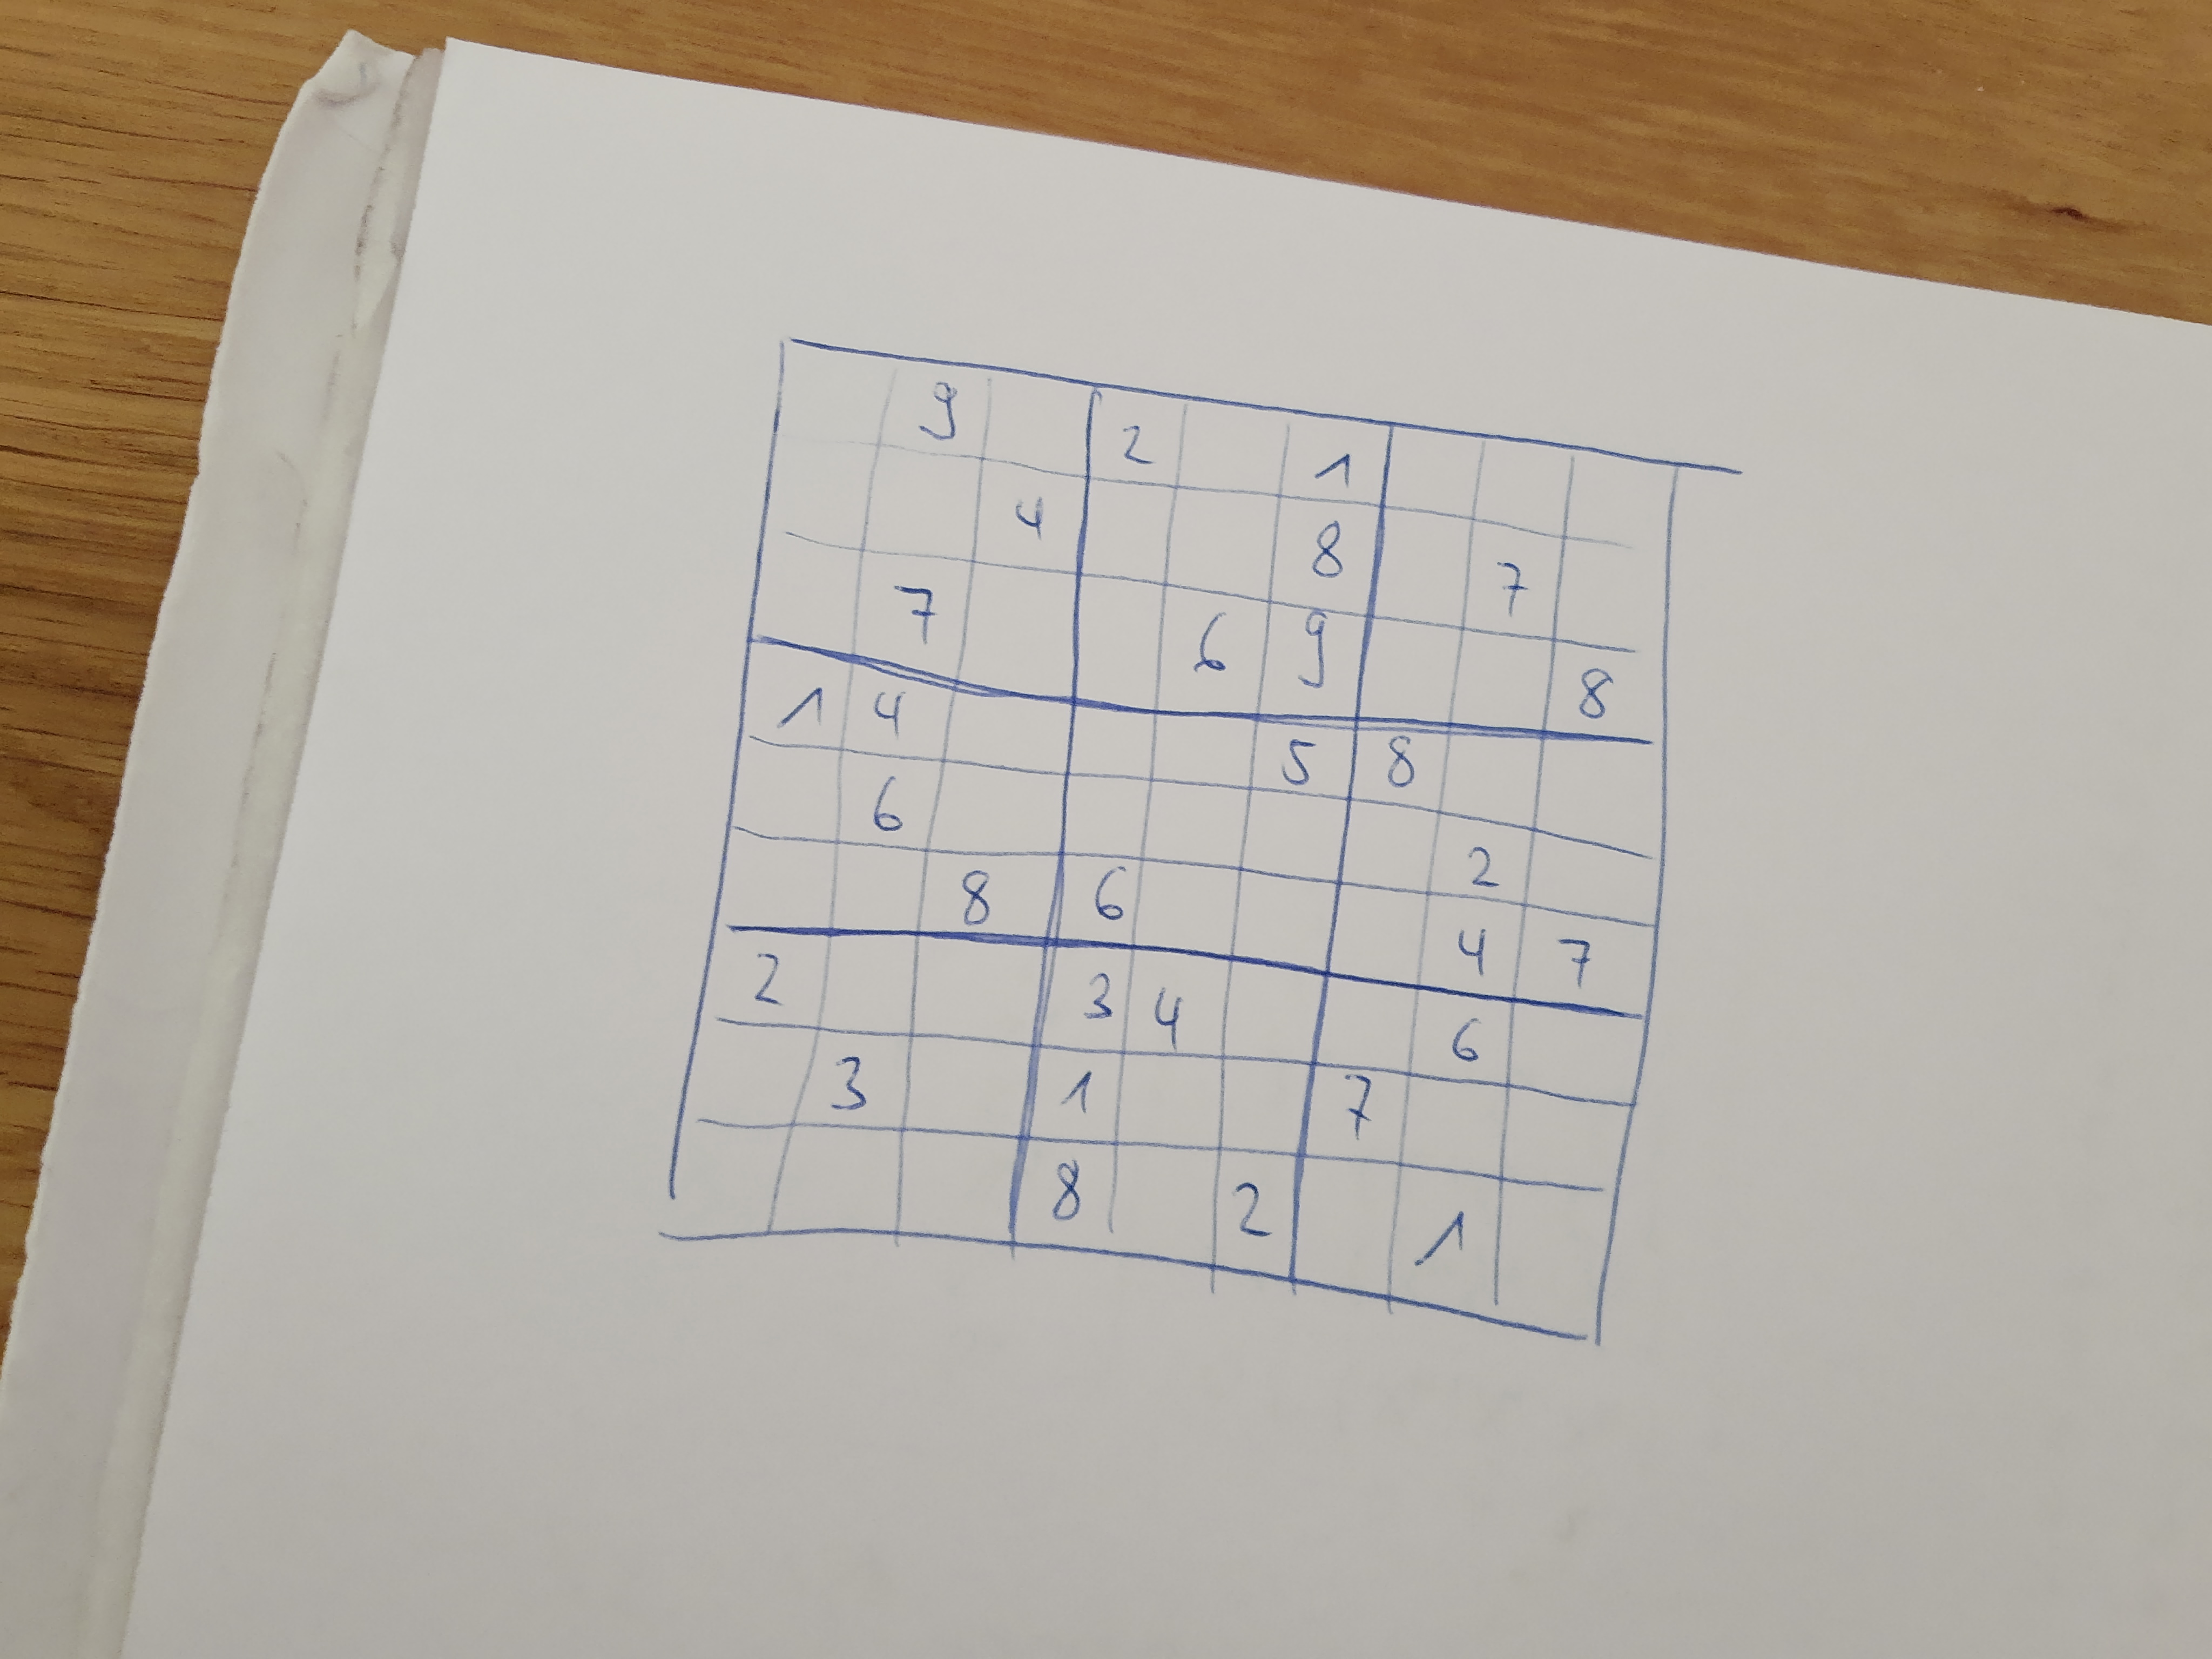 9 2 1
4 8 7
7 6 9 8
1 4 5 8
6 2
8 6 4 7
2 3 4 6
3 1 7
8 2 1